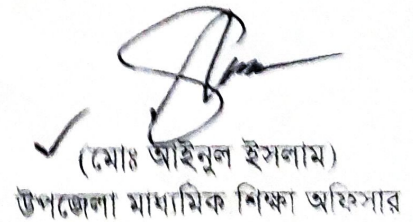 (মোঃ আইনুল ইসলাম)
উপজেলা মাধ্যমিক শিক্ষা অফিসার